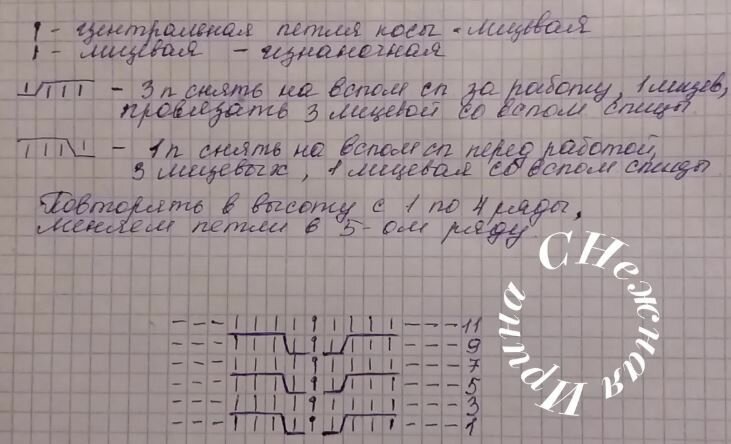 | - центральная петля косы - лицевая
| - лицевая - изнаночная
- 3 п снять на вспом сп за работу, 1 лицев,
провязать 3 лицевой со вспом спицы
- 1 п снять на вспом сп перед работой,
3 лицевых, 1 лицевая со вспом спицы
Повторять в высоту с 1 по 4 ряды,
меняем петли в 5-ом ряду.
11
9
7
5
3
1
Ирина СНежная